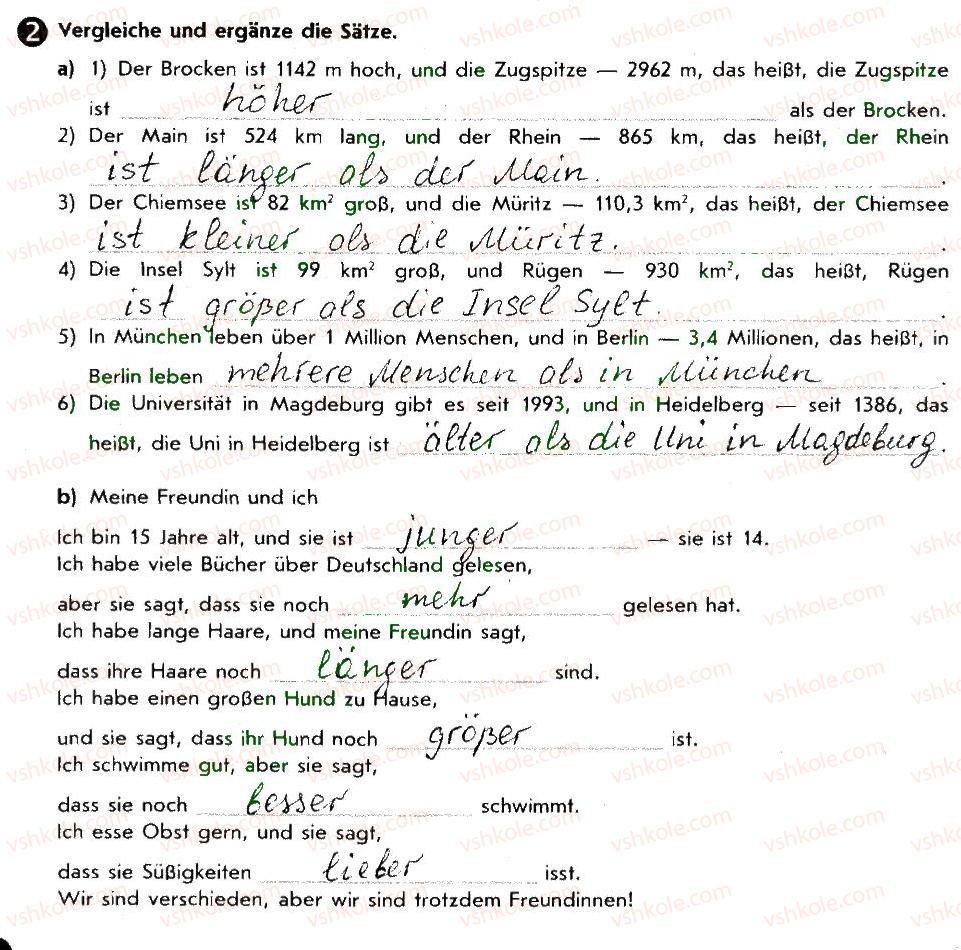 2 Vergleiche und ergänze die Sätze.
a) 1) Der Brocken ist 1142 m hoch, und die Zugspitze — 2962 m, das heißt, die Zugspitze
ist höher als der Brocken.
2) Der Main ist 524 km lang, und der Rhein — 865 km, das heißt, der Rhein
ist länger als der Main.
3) Der Chiemsee ist 82 km² groß, und die Müritz — 110,3 km², das heißt, der Chiemsee
ist kleiner als die Müritz.
4) Die Insel Sylt ist 99 km² groß, und Rügen — 930 km², das heißt, Rügen
ist größer als die Insel Sylt.
5) In München leben über 1 Million Menschen, und in Berlin — 3,4 Millionen, das heißt, in
Berlin leben mehrere Menschen als in München.
6) Die Universität in Magdeburg gibt es seit 1993, und in Heidelberg — seit 1386, das
heißt, die Uni in Heidelberg ist älter als die Uni in Magdeburg.
b) Meine Freundin und ich
Ich bin 15 Jahre alt, und sie ist jünger — sie ist 14.
Ich habe viele Bücher über Deutschland gelesen,
aber sie sagt, dass sie noch mehr gelesen hat.
Ich habe lange Haare, und meine Freundin sagt,
dass ihre Haare noch länger sind.
Ich habe einen großen Hund zu Hause,
und sie sagt, dass ihr Hund noch größer ist.
Ich schwimme gut, aber sie sagt,
dass sie noch besser schwimmt.
Ich esse Obst gern, und sie sagt,
dass sie Süßigkeiten lieber isst.
Wir sind verschieden, aber wir sind trotzdem Freundinnen!